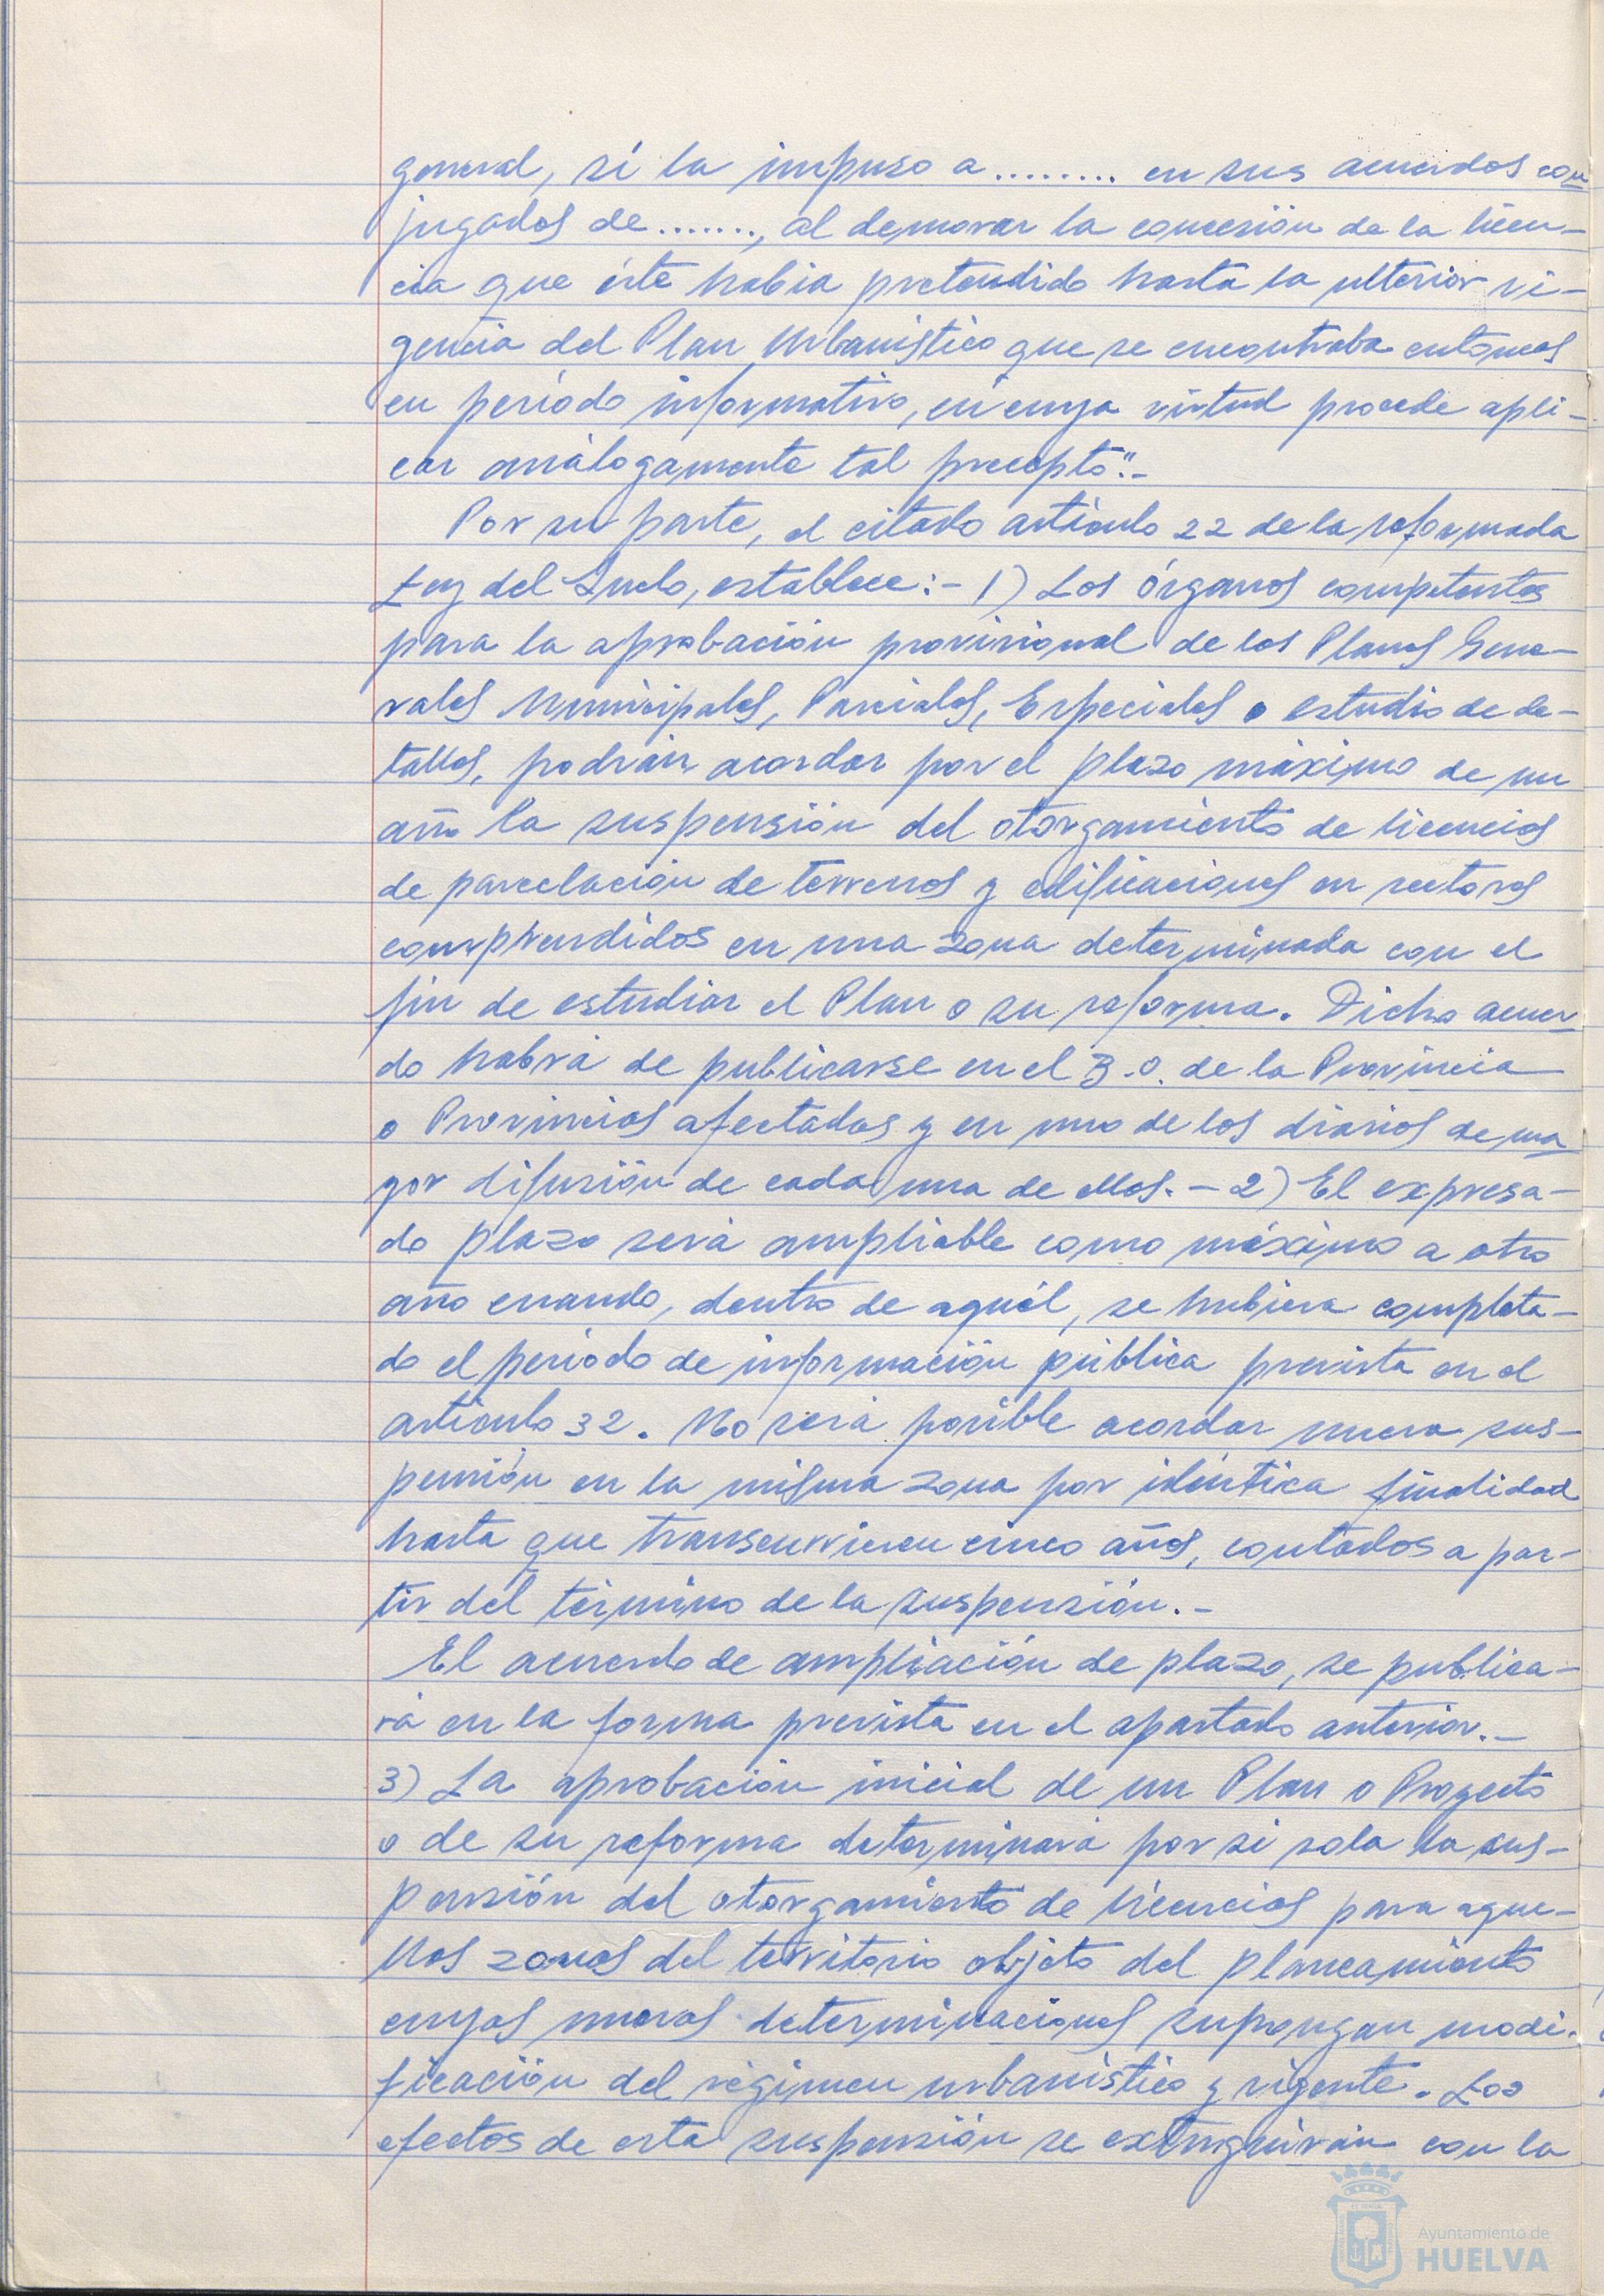 general, sí la impuso a ........ en sus acuerdos con
jugados de ......., al demorar la concesión de la licen-
cia que éste había pretendido hasta la ulterior vi-
gencia del Plan Urbanístico que se encontraba entonces
en período informativo, en cuya virtud procede apli-
car análogamente tal precepto".-
Por su parte, el citado artículo 22 de la reformada
Ley del Suelo, establece:- 1) Los órganos competentes
para la aprobación provisional de los Planes Gene-
rales Municipales, Parciales, Especiales o estudio de de-
talles, podrán acordar por el plazo máximo de un
año la suspensión del otorgamiento de licencias
de parcelación de terrenos y edificaciones en sectores
comprendidos en una zona determinada con el
fin de estudiar el Plan o su reforma. Dicho acuer
do habrá de publicarse en el B.O. de la Provincia
o Provincias afectadas y en uno de los diarios de ma
yor difusión de cada una de ellas. - 2) El expresa-
do plazo será ampliable como máximo a otro
año cuando, dentro de aquél, se hubiera completa-
do el período de información pública prevista en el
artículo 32. No será posible acordar nueva sus-
pensión en la misma zona por idéntica finalidad
hasta que transcurriesen cinco años, contados a par-
tir del término de la suspensión.-
El acuerdo de ampliación de plazo, se publica-
rá en la forma prevista en el apartado anterior.-
3) La aprobación inicial de un Plan o Proyecto
o de su reforma determinará por si sola la sus-
pensión del otorgamiento de licencias para aque-
llas zonas del territorio objeto del planeamiento
cuyas nuevas determinaciones supongan modi-
ficación del régimen urbanístico y vigente. Los
efectos de esta suspensión se extinguirán con la
Ayuntamiento de
HUELVA